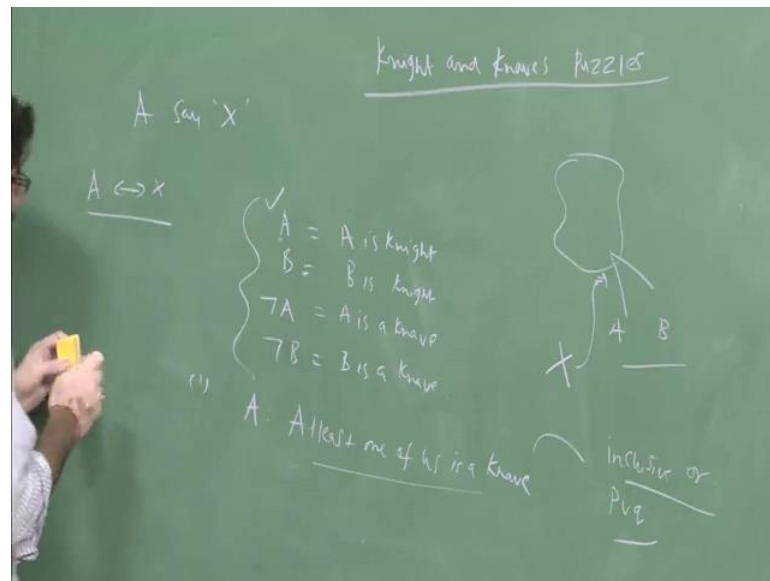 Knight and Knaves Puzzles
A say 'X'
A ↔ X
A = A is Knight
B = B is Knight
¬A = A is a Knave
¬B = B is a Knave
(1)
A. Atleast one of us is a Knave
A B
X
inclusive or
P∨q